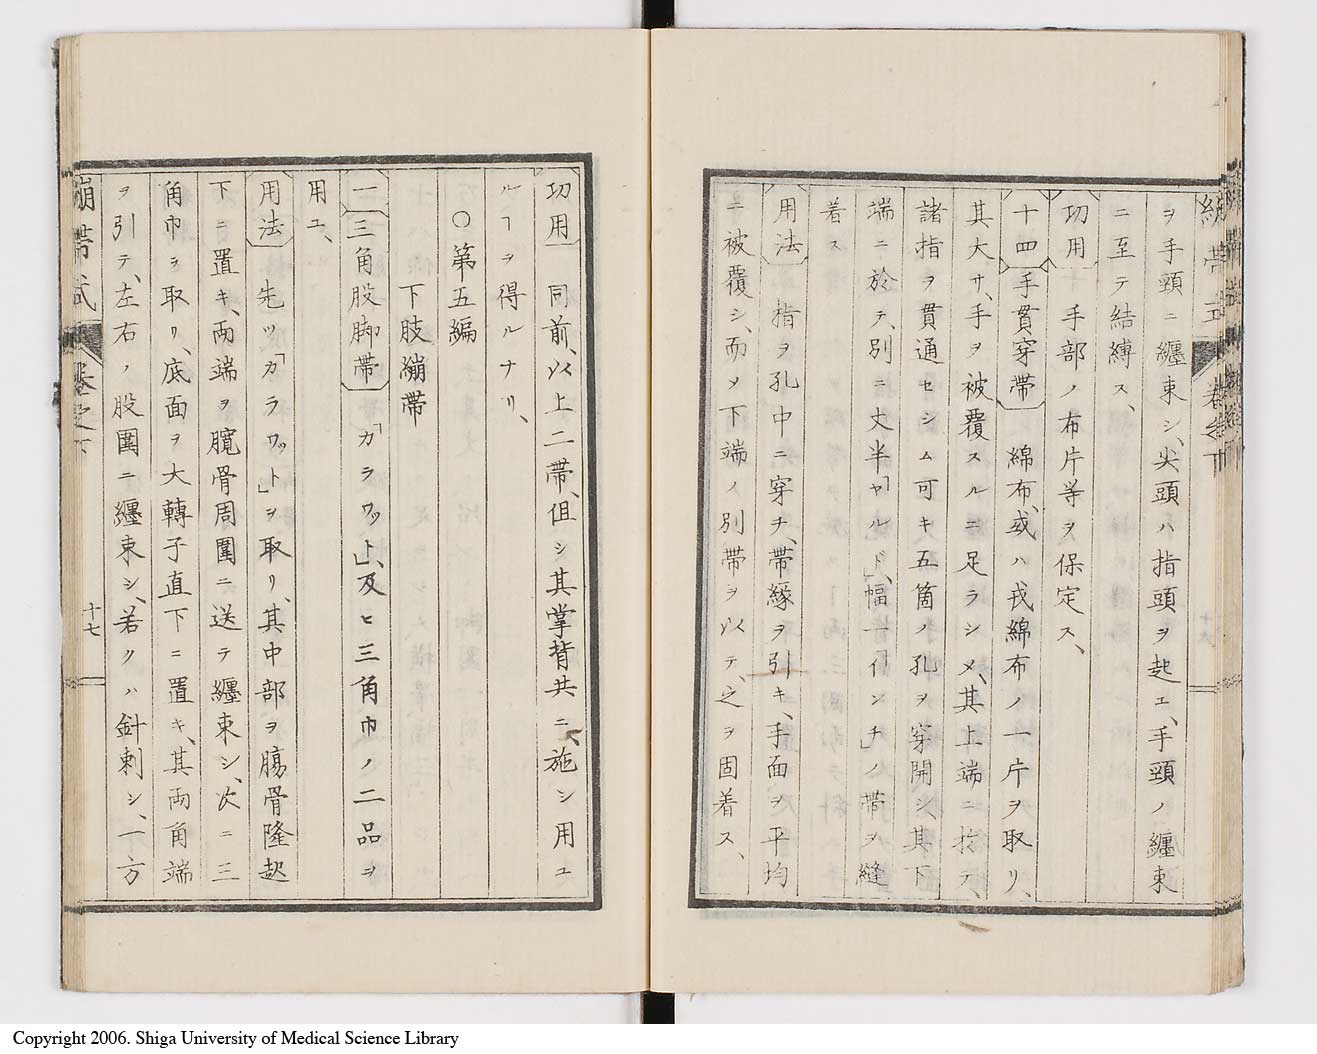 ヲ手頸ニ纏束シ、尖頭ハ指頭ヲ起エ、手頸ノ纏束
ニ至テ結縛ス、
功用 手部ノ布片等ヲ保定ス、
十四 手貫穿帯 綿布、或ハ戎綿布ノ一片ヲ取リ、
其大サ、手ヲ被覆スルニ足ラシメ、其上端ニ於テ、
諸指ヲ貫通セシム可キ五箇ノ孔ヲ穿開シ、其下
端ニ於テ、別ニ丈半「ヤールド」、幅一「インチ」ノ帯ヲ縫
着ス
用法 指ヲ孔中ニ穿チ、帯縁ヲ引キ、手面ヲ平均
ニ被覆シ、而メ下端ノ別帯ヲ以テ、之ヲ固着ス、
繃帯式 巻之下 十六
功用 同前、以上二帯、但シ其掌背共ニ、施シ用ユ
ルヿヲ得ルナリ、
○第五編
下肢繃帯
一 三角股脚帯 「カラワット」、及ヒ三角巾ノ二品ヲ
用ユ、
用法 先ツ「カラワット」ヲ取リ、其中部ヲ膓骨隆起
下ニ置キ、両端ヲ臗骨周圍ニ送テ纏束シ、次ニ三
角巾ヲ取リ、底面ヲ大轉子直下ニ置キ、其両角端
ヲ引テ、左右ノ股圍ニ纏束シ、若クハ針刺シ、一方
繃帯式 巻之下 十七
Copyright 2006. Shiga University of Medical Science Library